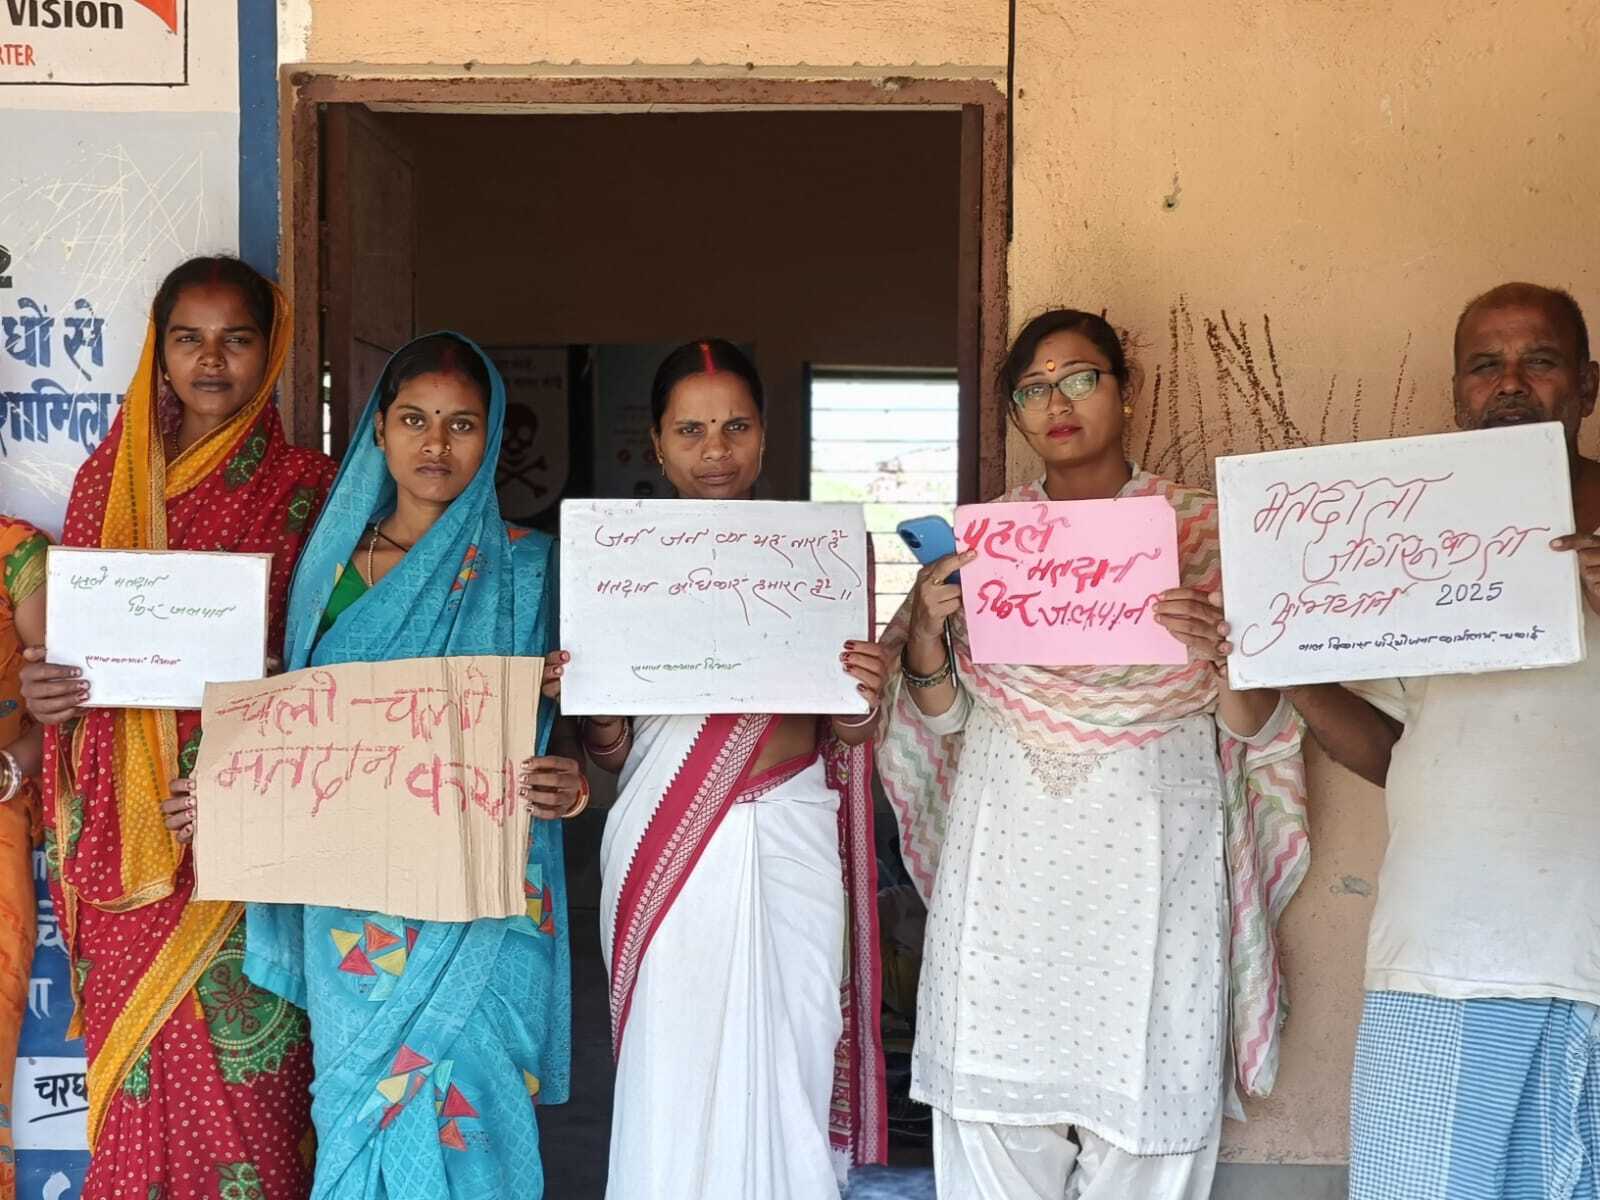 Vision
RTER
धों से
शामिल
पहले मतदान
फिर जलपान
समाज कल्याण विभाग
चलो-चलो
मतदान करो
जन जन का यह नारा है
मतदान अधिकार हमारा है।।
समाज कल्याण विभाग
पहले
मतदान
फिर जलपान
मतदाता
जागरूकता
अभियान 2025
बाल विकास परियोजना कार्यालय
चरघ